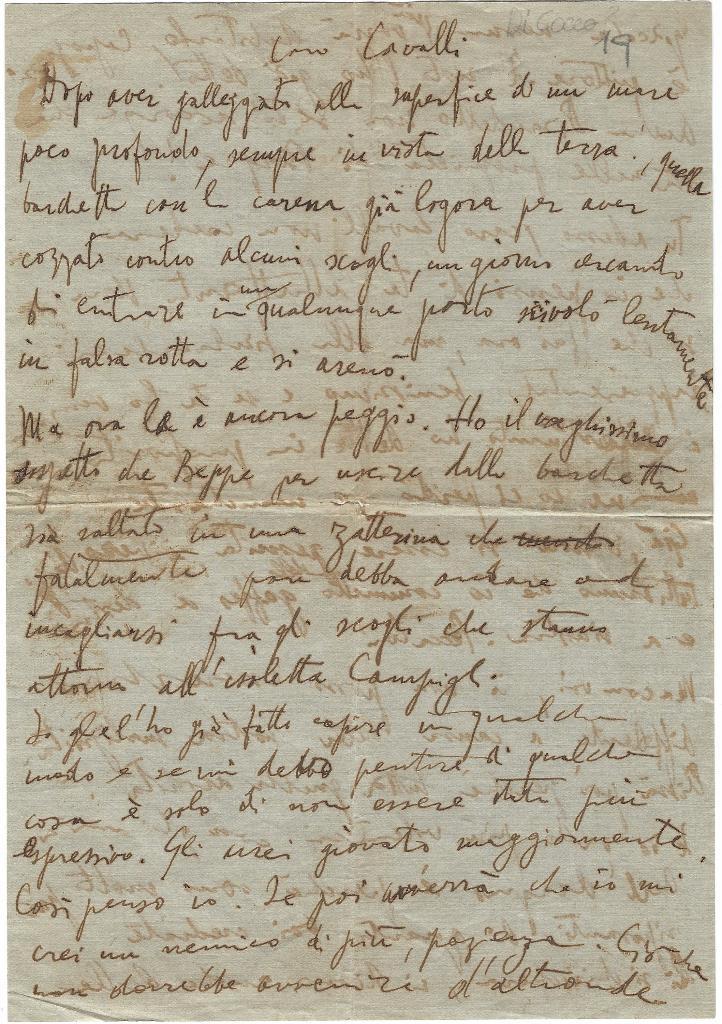 Di Cocco
19
Caro Cavalli
Dopo aver galleggiato alla superfice di un mare
poco profondo, sempre in vista della terra, quella
barchetta con la carena già logora per aver
cozzato contro alcuni scogli, un giorno cercando
di entrare in un qualunque porto scivolò lentamente
in falsa rotta e si arenò.
Ma ora la è ancora peggio. Ho il vaghissimo
sospetto che Beppe per uscire dalla barchetta
sia saltato in una zatterina che
fatalmente pare debba andare ad
incagliarsi fra gli scogli che stanno
attorno all'isoletta Campigli.
Io gliel'ho già fatto capire in qualche
modo e se mi debbo pentire di qualche
cosa è solo di non essere stato più
espressivo. Gli avrei giovato maggiormente.
Così penso io. Se poi avverrà che io mi
crei un nemico di più, pazienza. Ciò che
non dovrebbe avvenire d'altronde